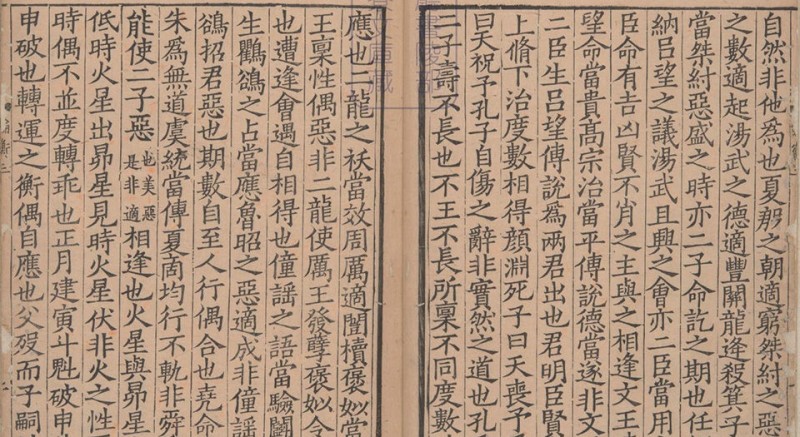 自然非他爲也夏殷之朝適窮桀紂之惡
之數適起湯武之德適豐關龍逄殺箕子
當桀紂惡盛之時亦二子命訖之期也任
納吕望之議湯武且興之會亦二臣當用
臣命有吉凶賢不肖之主與之相逢文王
望命當貴髙宗治當平傳說德當遂非文
二臣生吕望傳說爲兩君出也君明臣賢
上脩下治度數相得顔淵死子曰天喪予
曰天祝予孔子自傷之辭非實然之道也孔
二子壽不長也不王不長所稟不同度數
應也二龍之祅當效周厲適闓櫝褒姒當
王稟性偶惡非二龍使厲王發孽褒姒令
也遭逢會遇自相得也僮謡之語當驗鬭
生鸜鵒之占當應魯昭之惡適成非僮謡
鵒招君惡也期數自至人行偶合也堯命
朱爲無道虞統當傳夏啇均行不軌非舜
能使二子惡也美惡是非適相逢也火星與昴星
低時火星出昴星見時火星伏非火之性
時偶不並度轉乖也正月建寅斗魁破申
申破也轉運之衡偶自應也父歿而子嗣